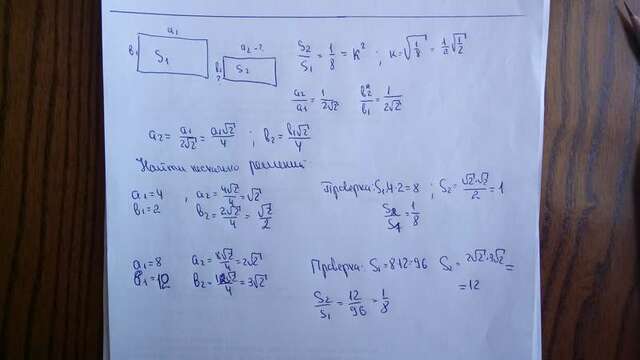 a₁
в₁ S₁
a₂ - ?
в₂ ? S₂
S₂/S₁ = 1/8 = k² ; k = √(1/8) = 1/2 √(1/2)
a₂/a₁ = 1/(2√2) в₂/в₁ = 1/(2√2)
a₂ = a₁/(2√2) = a₁√2/4 ; в₂ = в₁√2/4
Найти несколько решений
a₁ = 4 , a₂ = 4√2/4 = √2
в₁ = 2 в₂ = 2√2/4 = √2/2
Проверка: S₁ 4·2 = 8 ; S₂ = √2·√2/2 = 1
S₂/S₁ = 1/8
a₁ = 8 a₂ = 8√2/4 = 2√2
в₁ = 12 в₂ = 12√2/4 = 3√2
Проверка: S₁ = 8·12 = 96 S₂ = 2√2·3√2 =
= 12
S₂/S₁ = 12/96 = 1/8